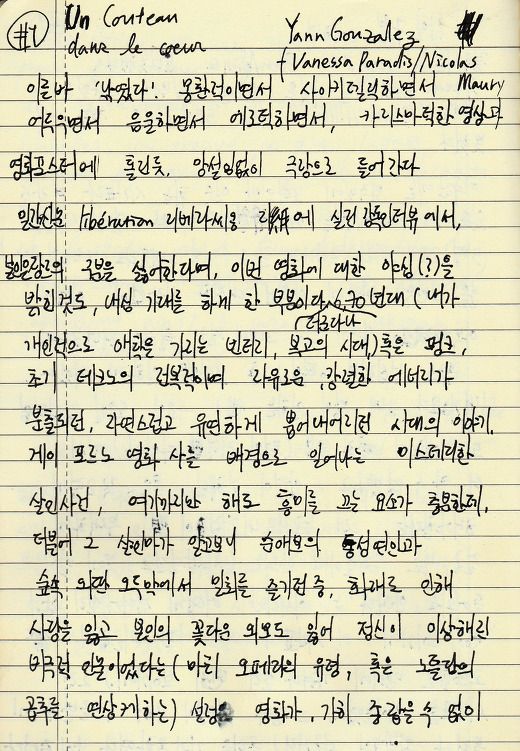 #1 Un Couteau dans le coeur
Yann Gonzalez
+ Vanessa Paradis/Nicolas Maury
이를바 '낚였다'. 몽환적이면서 사이키델릭하면서
어두우면서 음울하면서 에로틱하면서, 카리스마틱한 영상과
영화포스터에 홀린듯, 망설임없이 극장으로 들어간다
일간신문 libération 리베라씨옹 에 실린 감독인터뷰에서,
의 구분을 싫어한다며, 이번 영화에 대한 야심(?)을
밝힌것도, 내심 기대를 하게 한 부분이다. 6,70년대 (내가
더군다나
개인적으로 애착을 가리는 빈티리, 복고의 시대,) 혹은 펑크,
초기 테크노의 전복적이며 라유로운, 강렬한 에너리가
분출되던, 라연스럽고 유연하게 뿜어내어리던 시대의 이야기.
게이 포르노 영화사를 배경으로 일어나는 미스테리한
살인사건, 여기까리만 해도 흥미를 끄는 요소가 충분한데,
더불어 그 살인마가 알고보니 순애보의 동성연인과
숲속 외딴 오두막에서 밀회를 즐기던 중, 화재로 인해
사랑을 잃고 본인의 꽃다운 외모도 잃어 정신이 이상해린
비극적 인물이었다는 (마치 오페라의 유령, 혹은 노틀담의
꼽추를 연상케하는) 설정 영화가, 가히 종잡을수 없이